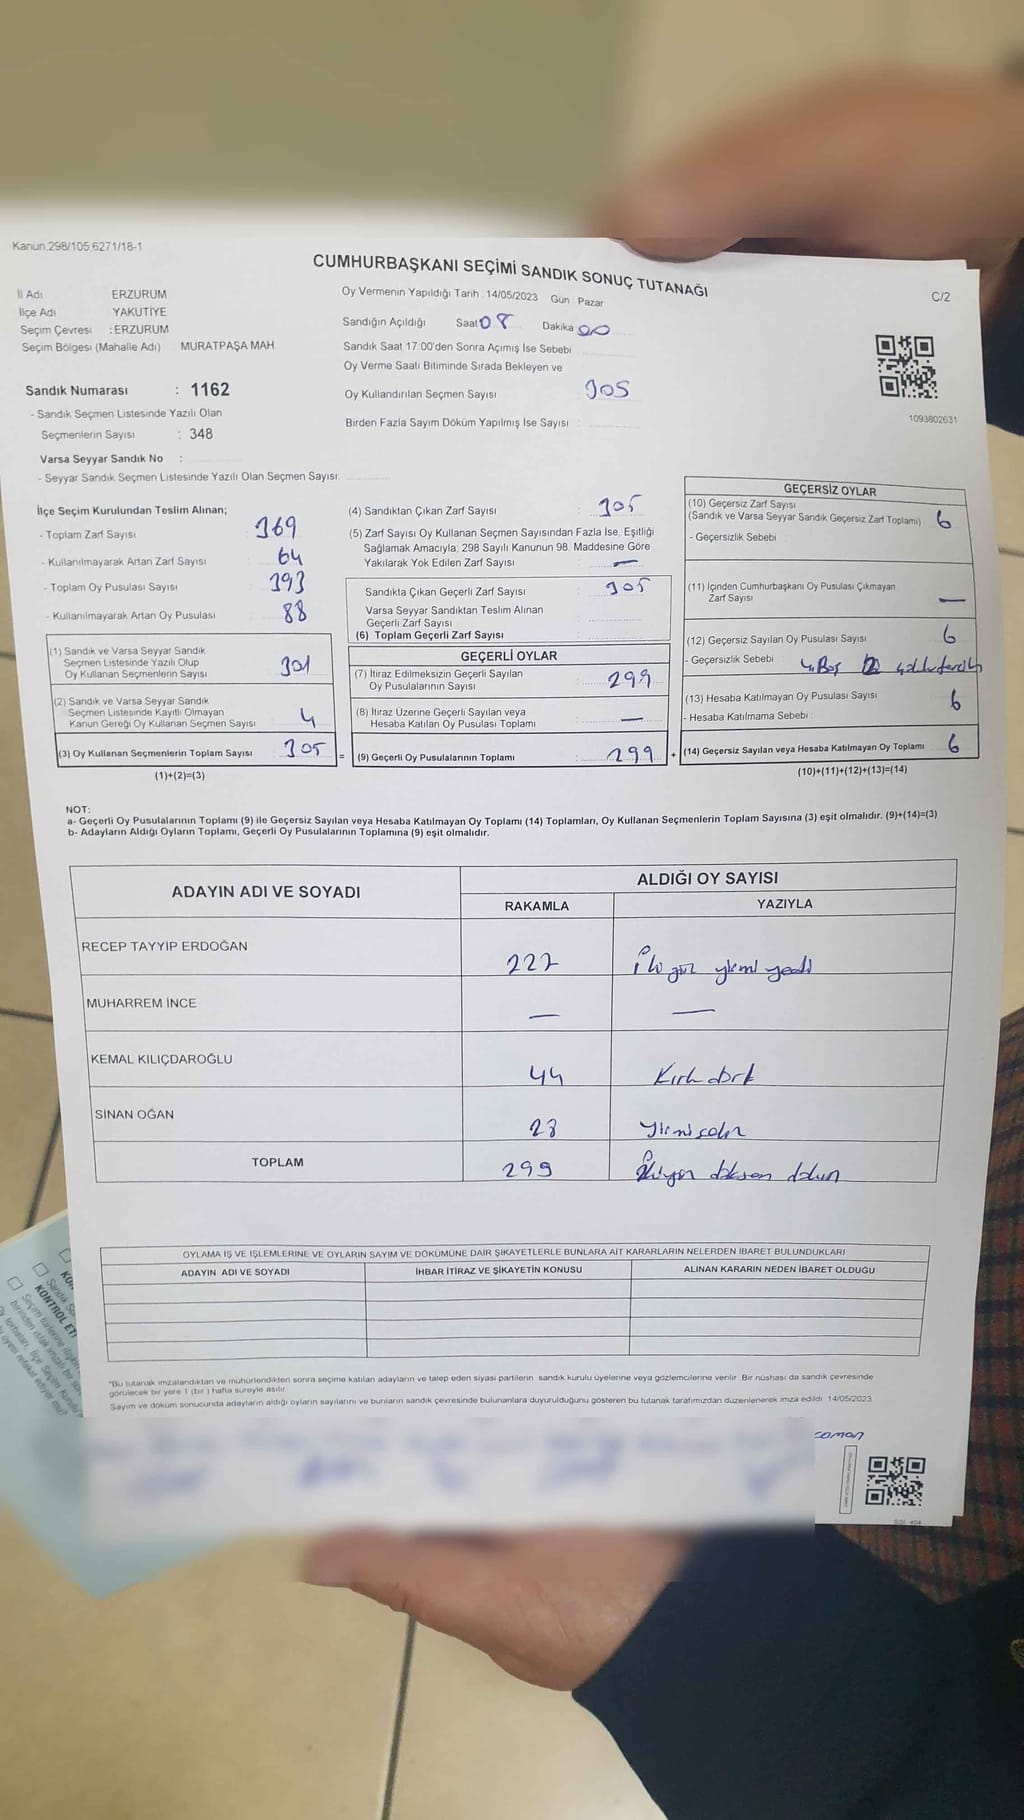 Kanun.298/105,6271/18-1
CUMHURBAŞKANI SEÇİMİ SANDIK SONUÇ TUTANAĞI
C/2
İl Adı ERZURUM
İlçe Adı YAKUTİYE
Seçim Çevresi : ERZURUM
Seçim Bölgesi (Mahalle Adı) MURATPAŞA MAH
Oy Vermenin Yapıldığı Tarih : 14/05/2023 Gün Pazar
Sandığın Açıldığı Saat 08 Dakika 00
Sandık Saat 17:00'den Sonra Açımış İse Sebebi
Oy Verme Saati Bitiminde Sırada Bekleyen ve
Oy Kullandırılan Seçmen Sayısı : 305
Birden Fazla Sayım Döküm Yapılmış İse Sayısı :
1093802631
Sandık Numarası : 1162
- Sandık Seçmen Listesinde Yazılı Olan
Seçmenlerin Sayısı : 348
Varsa Seyyar Sandık No :
- Seyyar Sandık Seçmen Listesinde Yazılı Olan Seçmen Sayısı:
İlçe Seçim Kurulundan Teslim Alınan;
- Toplam Zarf Sayısı 369
- Kullanılmayarak Artan Zarf Sayısı 64
- Toplam Oy Pusulası Sayısı 393
- Kullanılmayarak Artan Oy Pusulası 88
(1) Sandık ve Varsa Seyyar Sandık
Seçmen Listesinde Yazılı Olup
Oy Kullanan Seçmenlerin Sayısı 301
(2) Sandık ve Varsa Seyyar Sandık
Seçmen Listesinde Kayıtlı Olmayan
Kanun Gereği Oy Kullanan Seçmen Sayısı 4
(3) Oy Kullanan Seçmenlerin Toplam Sayısı 305 =
(1)+(2)=(3)
(4) Sandıktan Çıkan Zarf Sayısı : 305
(5) Zarf Sayısı Oy Kullanan Seçmen Sayısından Fazla İse, Eşitliği
Sağlamak Amacıyla; 298 Sayılı Kanunun 98. Maddesine Göre
Yakılarak Yok Edilen Zarf Sayısı : —
Sandıkta Çıkan Geçerli Zarf Sayısı : 305
Varsa Seyyar Sandıktan Teslim Alınan
Geçerli Zarf Sayısı :
(6) Toplam Geçerli Zarf Sayısı :
GEÇERLİ OYLAR
(7) İtiraz Edilmeksizin Geçerli Sayılan
Oy Pusulalarının Sayısı : 299
(8) İtiraz Üzerine Geçerli Sayılan veya
Hesaba Katılan Oy Pusulası Toplamı : —
(9) Geçerli Oy Pusulalarının Toplamı : 299 +
GEÇERSİZ OYLAR
(10) Geçersiz Zarf Sayısı
(Sandık ve Varsa Seyyar Sandık Geçersiz Zarf Toplamı) 6
- Geçersizlik Sebebi
(11) İçinden Cumhurbaşkanı Oy Pusulası Çıkmayan
Zarf Sayısı —
(12) Geçersiz Sayılan Oy Pusulası Sayısı 6
- Geçersizlik Sebebi 4 Boş
(13) Hesaba Katılmayan Oy Pusulası Sayısı 6
- Hesaba Katılmama Sebebi
(14) Geçersiz Sayılan veya Hesaba Katılmayan Oy Toplamı 6
(10)+(11)+(12)+(13)=(14)
NOT:
a- Geçerli Oy Pusulalarının Toplamı (9) ile Geçersiz Sayılan veya Hesaba Katılmayan Oy Toplamı (14) Toplamları, Oy Kullanan Seçmenlerin Toplam Sayısına (3) eşit olmalıdır. (9)+(14)=(3)
b- Adayların Aldığı Oyların Toplamı, Geçerli Oy Pusulalarının Toplamına (9) eşit olmalıdır.
ADAYIN ADI VE SOYADI
ALDIĞI OY SAYISI
RAKAMLA YAZIYLA
RECEP TAYYİP ERDOĞAN 227 iki yüz yirmi yedi
MUHARREM İNCE — —
KEMAL KILIÇDAROĞLU 44 Kırk dört
SİNAN OĞAN 28 Yirmi sekiz
TOPLAM 299 ikiyüz doksan dokuz
OYLAMA İŞ VE İŞLEMLERİNE VE OYLARIN SAYIM VE DÖKÜMÜNE DAİR ŞİKAYETLERLE BUNLARA AİT KARARLARIN NELERDEN İBARET BULUNDUKLARI
ADAYIN ADI VE SOYADI İHBAR İTİRAZ VE ŞİKAYETİN KONUSU ALINAN KARARIN NEDEN İBARET OLDUĞU
"Bu tutanak imzalandıktan ve mühürlendikten sonra seçime katılan adayların ve talep eden siyasi partilerin sandık kurulu üyelerine veya gözlemcilerine verilir. Bir nüshası da sandık çevresinde
görülecek bir yere 1 (bir) hafta süreyle asılır.
Sayım ve döküm sonucunda adayların aldığı oyların sayılarını ve bunların sandık çevresinde bulunanlara duyurulduğunu gösteren bu tutanak tarafımızdan düzenlenerek imza edildi. 14/05/2023